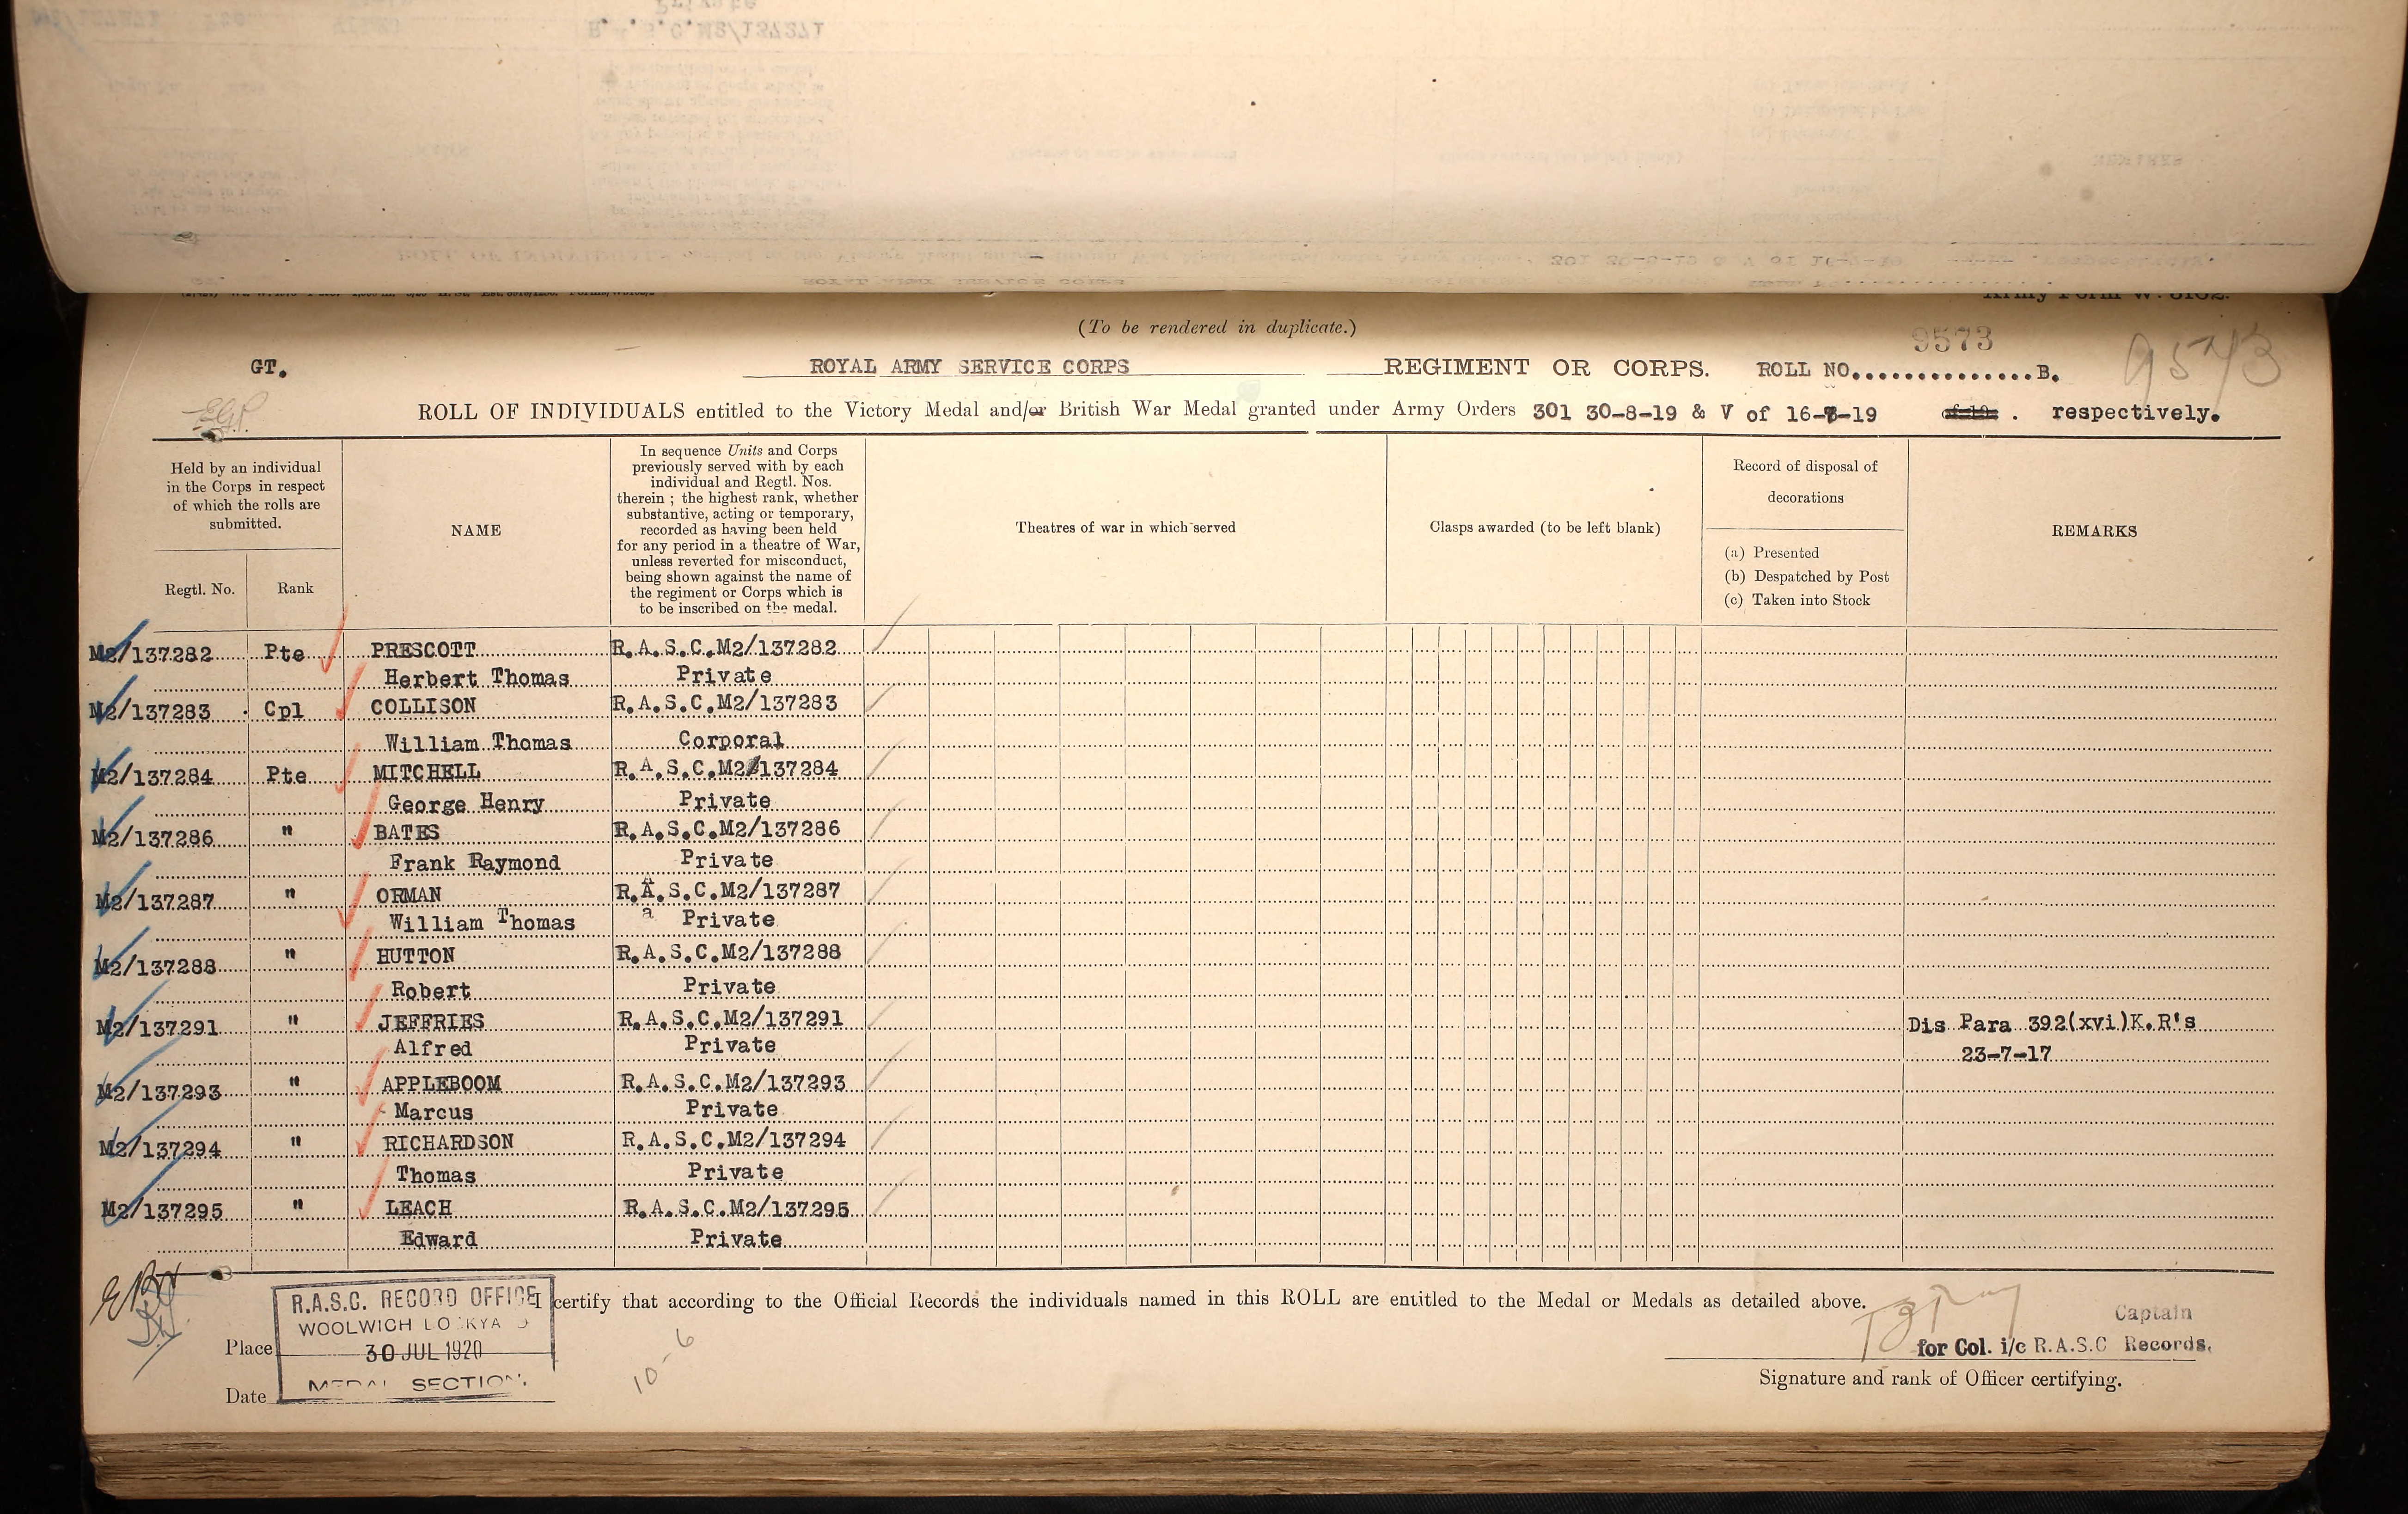 (To be rendered in duplicate.)
9573
GT. ROYAL ARMY SERVICE CORPS REGIMENT OR CORPS. ROLL NO...............B. 9573
ROLL OF INDIVIDUALS entitled to the Victory Medal and/or British War Medal granted under Army Orders 301 30-8-19 & V of 16-7-19 of 19 . respectively.
Held by an individual
in the Corps in respect
of which the rolls are
submitted.
Regtl. No.
Rank
NAME
In sequence Units and Corps
previously served with by each
individual and Regtl. Nos.
therein ; the highest rank, whether
substantive, acting or temporary,
recorded as having been held
for any period in a theatre of War,
unless reverted for misconduct,
being shown against the name of
the regiment or Corps which is
to be inscribed on the medal.
Theatres of war in which served
Clasps awarded (to be left blank)
Record of disposal of
decorations
(a) Presented
(b) Despatched by Post
(c) Taken into Stock
REMARKS
M2/137282 Pte PRESCOTT R.A.S.C.M2/137282
Herbert Thomas Private
M2/137283 Cpl COLLISON R.A.S.C.M2/137283
William Thomas Corporal
M2/137284 Pte MITCHELL R.A.S.C.M2/137284
George Henry Private
M2/137286 " BATES R.A.S.C.M2/137286
Frank Raymond Private
M2/137287 " ORMAN R.A.S.C.M2/137287
William Thomas a Private
M2/137288 " HUTTON R.A.S.C.M2/137288
Robert Private
M2/137291 " JEFFRIES R.A.S.C.M2/137291 Dis Para 392(xvi)K.R's
Alfred Private 23-7-17
M2/137293 " APPLEBOOM R.A.S.C.M2/137293
Marcus Private
M2/137294 " RICHARDSON R.A.S.C.M2/137294
Thomas Private
M2/137295 " LEACH R.A.S.C.M2/137295
Edward Private
I certify that according to the Official Records the individuals named in this ROLL are entitled to the Medal or Medals as detailed above.
R.A.S.C. RECORD OFFICE
WOOLWICH DOCKYARD
30 JUL 1920
MEDAL SECTION.
Place
Date
10-6
Captain
for Col. i/c R.A.S.C Records.
Signature and rank of Officer certifying.